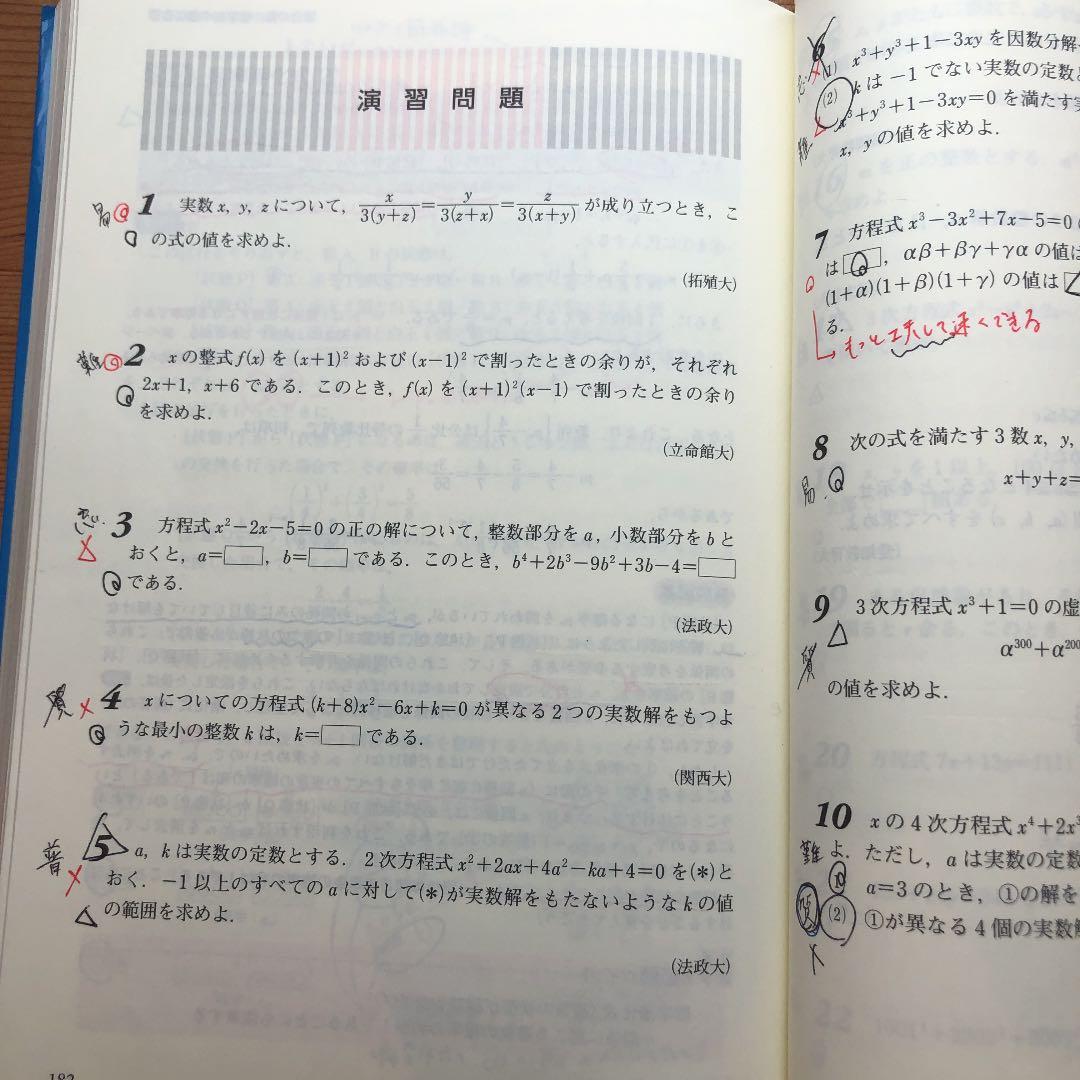 演習問題
易 1 実数 x, y, z について, x/3(y+z)=y/3(z+x)=z/3(x+y) が成り立つとき, こ
の式の値を求めよ.
(拓殖大)
難 2 x の整式 f(x) を (x+1)² および (x−1)² で割ったときの余りが, それぞれ
2x+1, x+6 である. このとき, f(x) を (x+1)²(x−1) で割ったときの余り
を求めよ.
(立命館大)
3 方程式 x²−2x−5=0 の正の解について, 整数部分を a, 小数部分を b と
おくと, a=□, b=□である. このとき, b⁴+2b³−9b²+3b−4=□
である.
(法政大)
4 x についての方程式 (k+8)x²−6x+k=0 が異なる 2 つの実数解をもつよ
うな最小の整数 k は, k=□である.
(関西大)
普 5 a, k は実数の定数とする. 2 次方程式 x²+2ax+4a²−ka+4=0 を(*)と
おく. −1 以上のすべての a に対して(*)が実数解をもたないような k の値
の範囲を求めよ.
(法政大)
182
6 (1) x³+y³+1−3xy を因数分解
(2) k は −1 でない実数の定数
難 x³+y³+1−3xy=0 を満たす
x, y の値を求めよ.
7 方程式 x³−3x²+7x−5=0
は□, αβ+βγ+γα の値は
(1+α)(1+β)(1+γ) の値は
る.
もっと工夫して速くできる
8 次の式を満たす 3 数 x, y,
易 x+y+z=
9 3 次方程式 x³+1=0 の虚
α³⁰⁰+α²⁰⁰
の値を求めよ.
10 x の 4 次方程式 x⁴+2x³
難 よ.
ただし, a は実数の定数
(1) a=3 のとき, ①の解を
(2) ①が異なる 4 個の実数解